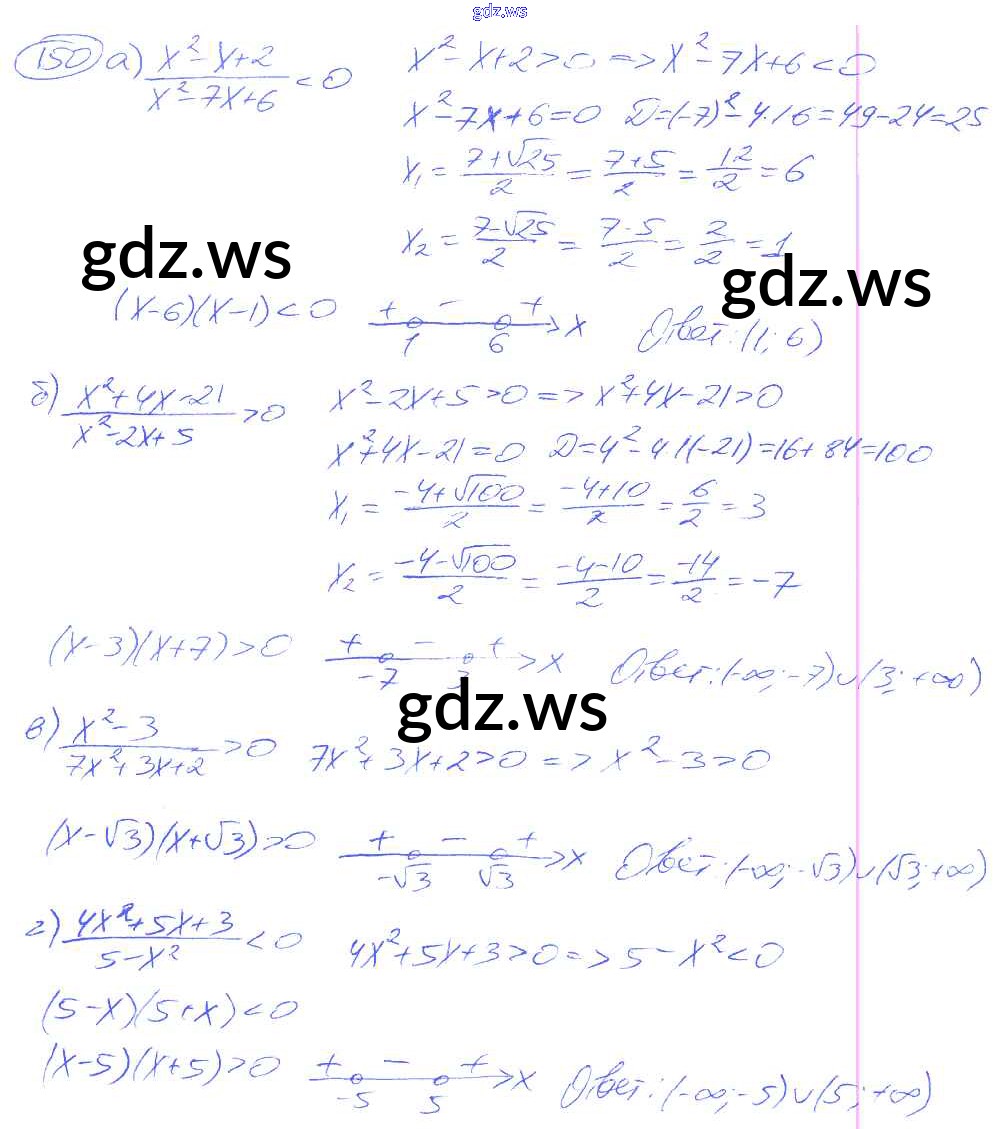 gdz.ws
150 а) (x²-x+2)/(x²-7x+6) < 0   x²-x+2>0 => x²-7x+6<0
x²-7x+6=0   D=(-7)²-4·1·6=49-24=25
x₁ = (7+√25)/2 = (7+5)/2 = 12/2 = 6
x₂ = (7-√25)/2 = (7-5)/2 = 2/2 = 1
gdz.ws
gdz.ws
(x-6)(x-1)<0   + - + 1 6 x   Ответ: (1; 6)
б) (x²+4x-21)/(x²-2x+5) > 0   x²-2x+5>0 => x²+4x-21>0
x²+4x-21=0   D=4²-4·1(-21)=16+84=100
x₁ = (-4+√100)/2 = (-4+10)/2 = 6/2 = 3
x₂ = (-4-√100)/2 = (-4-10)/2 = -14/2 = -7
(x-3)(x+7)>0   + - + -7 3 x   Ответ: (-∞; -7)∪(3; +∞)
gdz.ws
в) (x²-3)/(7x²+3x+2) > 0   7x²+3x+2>0 => x²-3>0
(x-√3)(x+√3)>0   + - + -√3 √3 x   Ответ: (-∞; -√3)∪(√3; +∞)
г) (4x²+5x+3)/(5-x²) < 0   4x²+5x+3>0 => 5-x²<0
(5-x)(5+x)<0
(x-5)(x+5)>0   + - + -5 5 x   Ответ: (-∞; -5)∪(5; +∞)